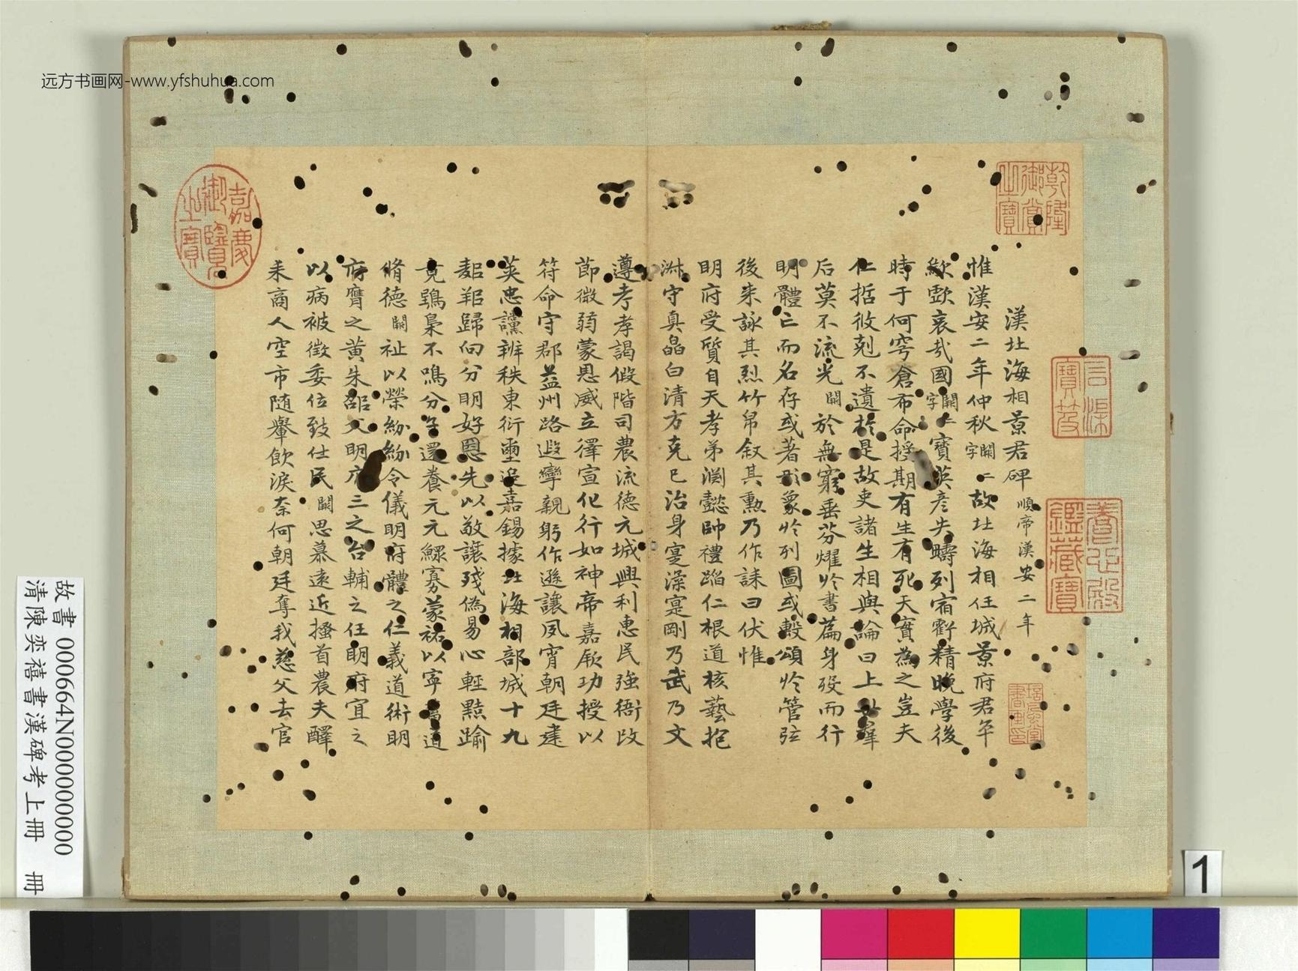 远方书画网-www.yfshuhua.com
乾隆御賞之寶
三希堂
養心殿鑑藏寶
嘉慶御覽之寶
漢北海相景君碑 順帝漢安二年
惟漢安二年仲秋 闕二字 故北海相任城景府君卒
歔歔哀哉國 闕二字 寶英彥失疇列宿虧精晚學後
時于何穹倉布命授期有生有死天實為之豈夫
仁哲攸剋不遺於是故吏諸生相與論曰上世羣
后莫不流光 闕 於無窮垂芬耀於書篇身歿而行
明體亡而名存或著形象於列圖或數頌於管弦
後来詠其烈竹帛叙其勲乃作誄曰伏惟
明府受質自天孝弟淵懿帥禮蹈仁根道核藝抱
淑守真皛白清方克己治身寔柔寔剛乃武乃文
遵考孝謁假階司農流德元城興利惠民強衙改
節微弱蒙恩威立澤宣化行如神帝嘉厥功授以
符命守郡益州路遐攣親躬作遜讓夙宵朝廷建
英忠讜辨秩東衍璽追嘉錫據北海相部城十九
鄰邦歸向分明好惡先以敬讓殘偽易心輕黠踰
竟鴟梟不鳴分子還養元元鰥寡蒙祐以寧
脩德 闕 祉以榮紛紛令儀明府體之仁義道術明
府膺之黄朱邵父明府三之台輔之任明府宜之
以病被徵委位致仕民 闕 思慕遠近搔首農夫醳
耒商人空市随轝飲淚奈何朝廷奪我慈父去官
故書 000664N000000000
清陳奕禧書漢碑考上冊 冊
1